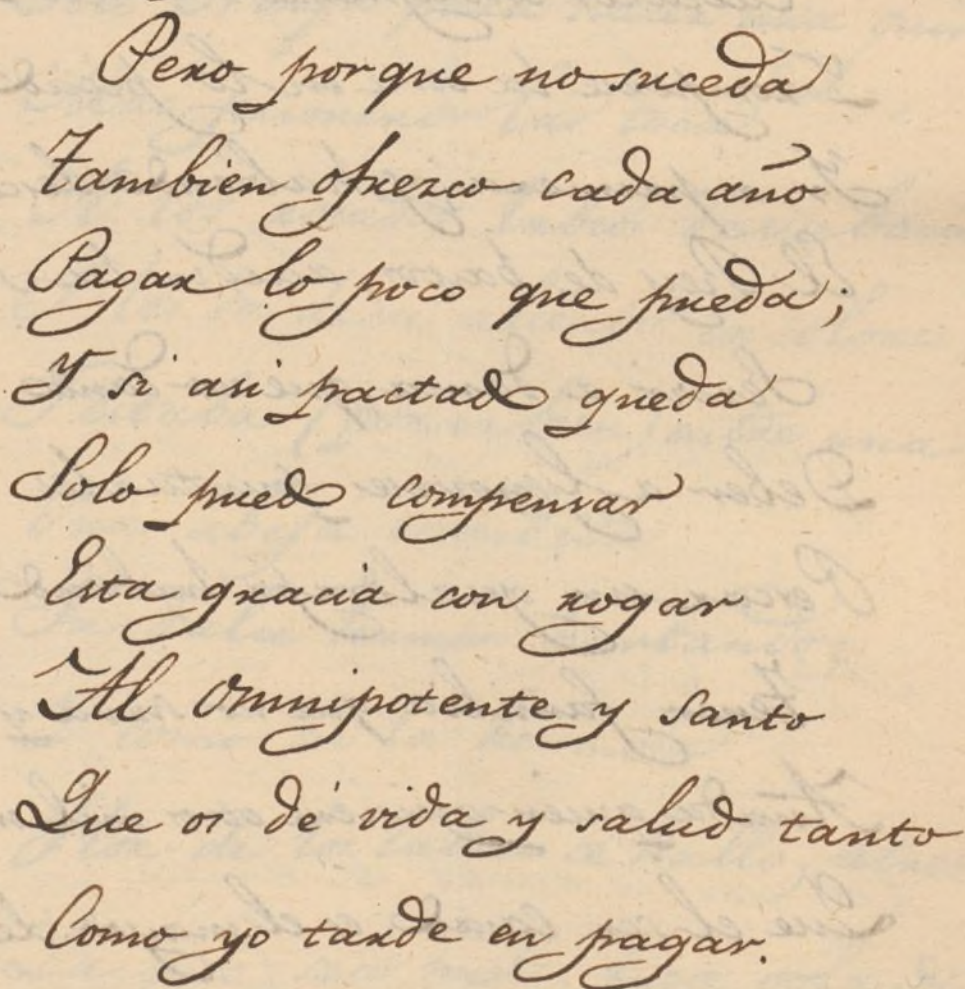 Pero porque no suceda
Tambien ofrezco cada año
Pagar lo poco que pueda;
Y si asi pactado queda
Solo puedo compensar
Esta gracia con rogar
Al Omnipotente y Santo
Que os dé vida y salud tanto
Como yo tarde en pagar.